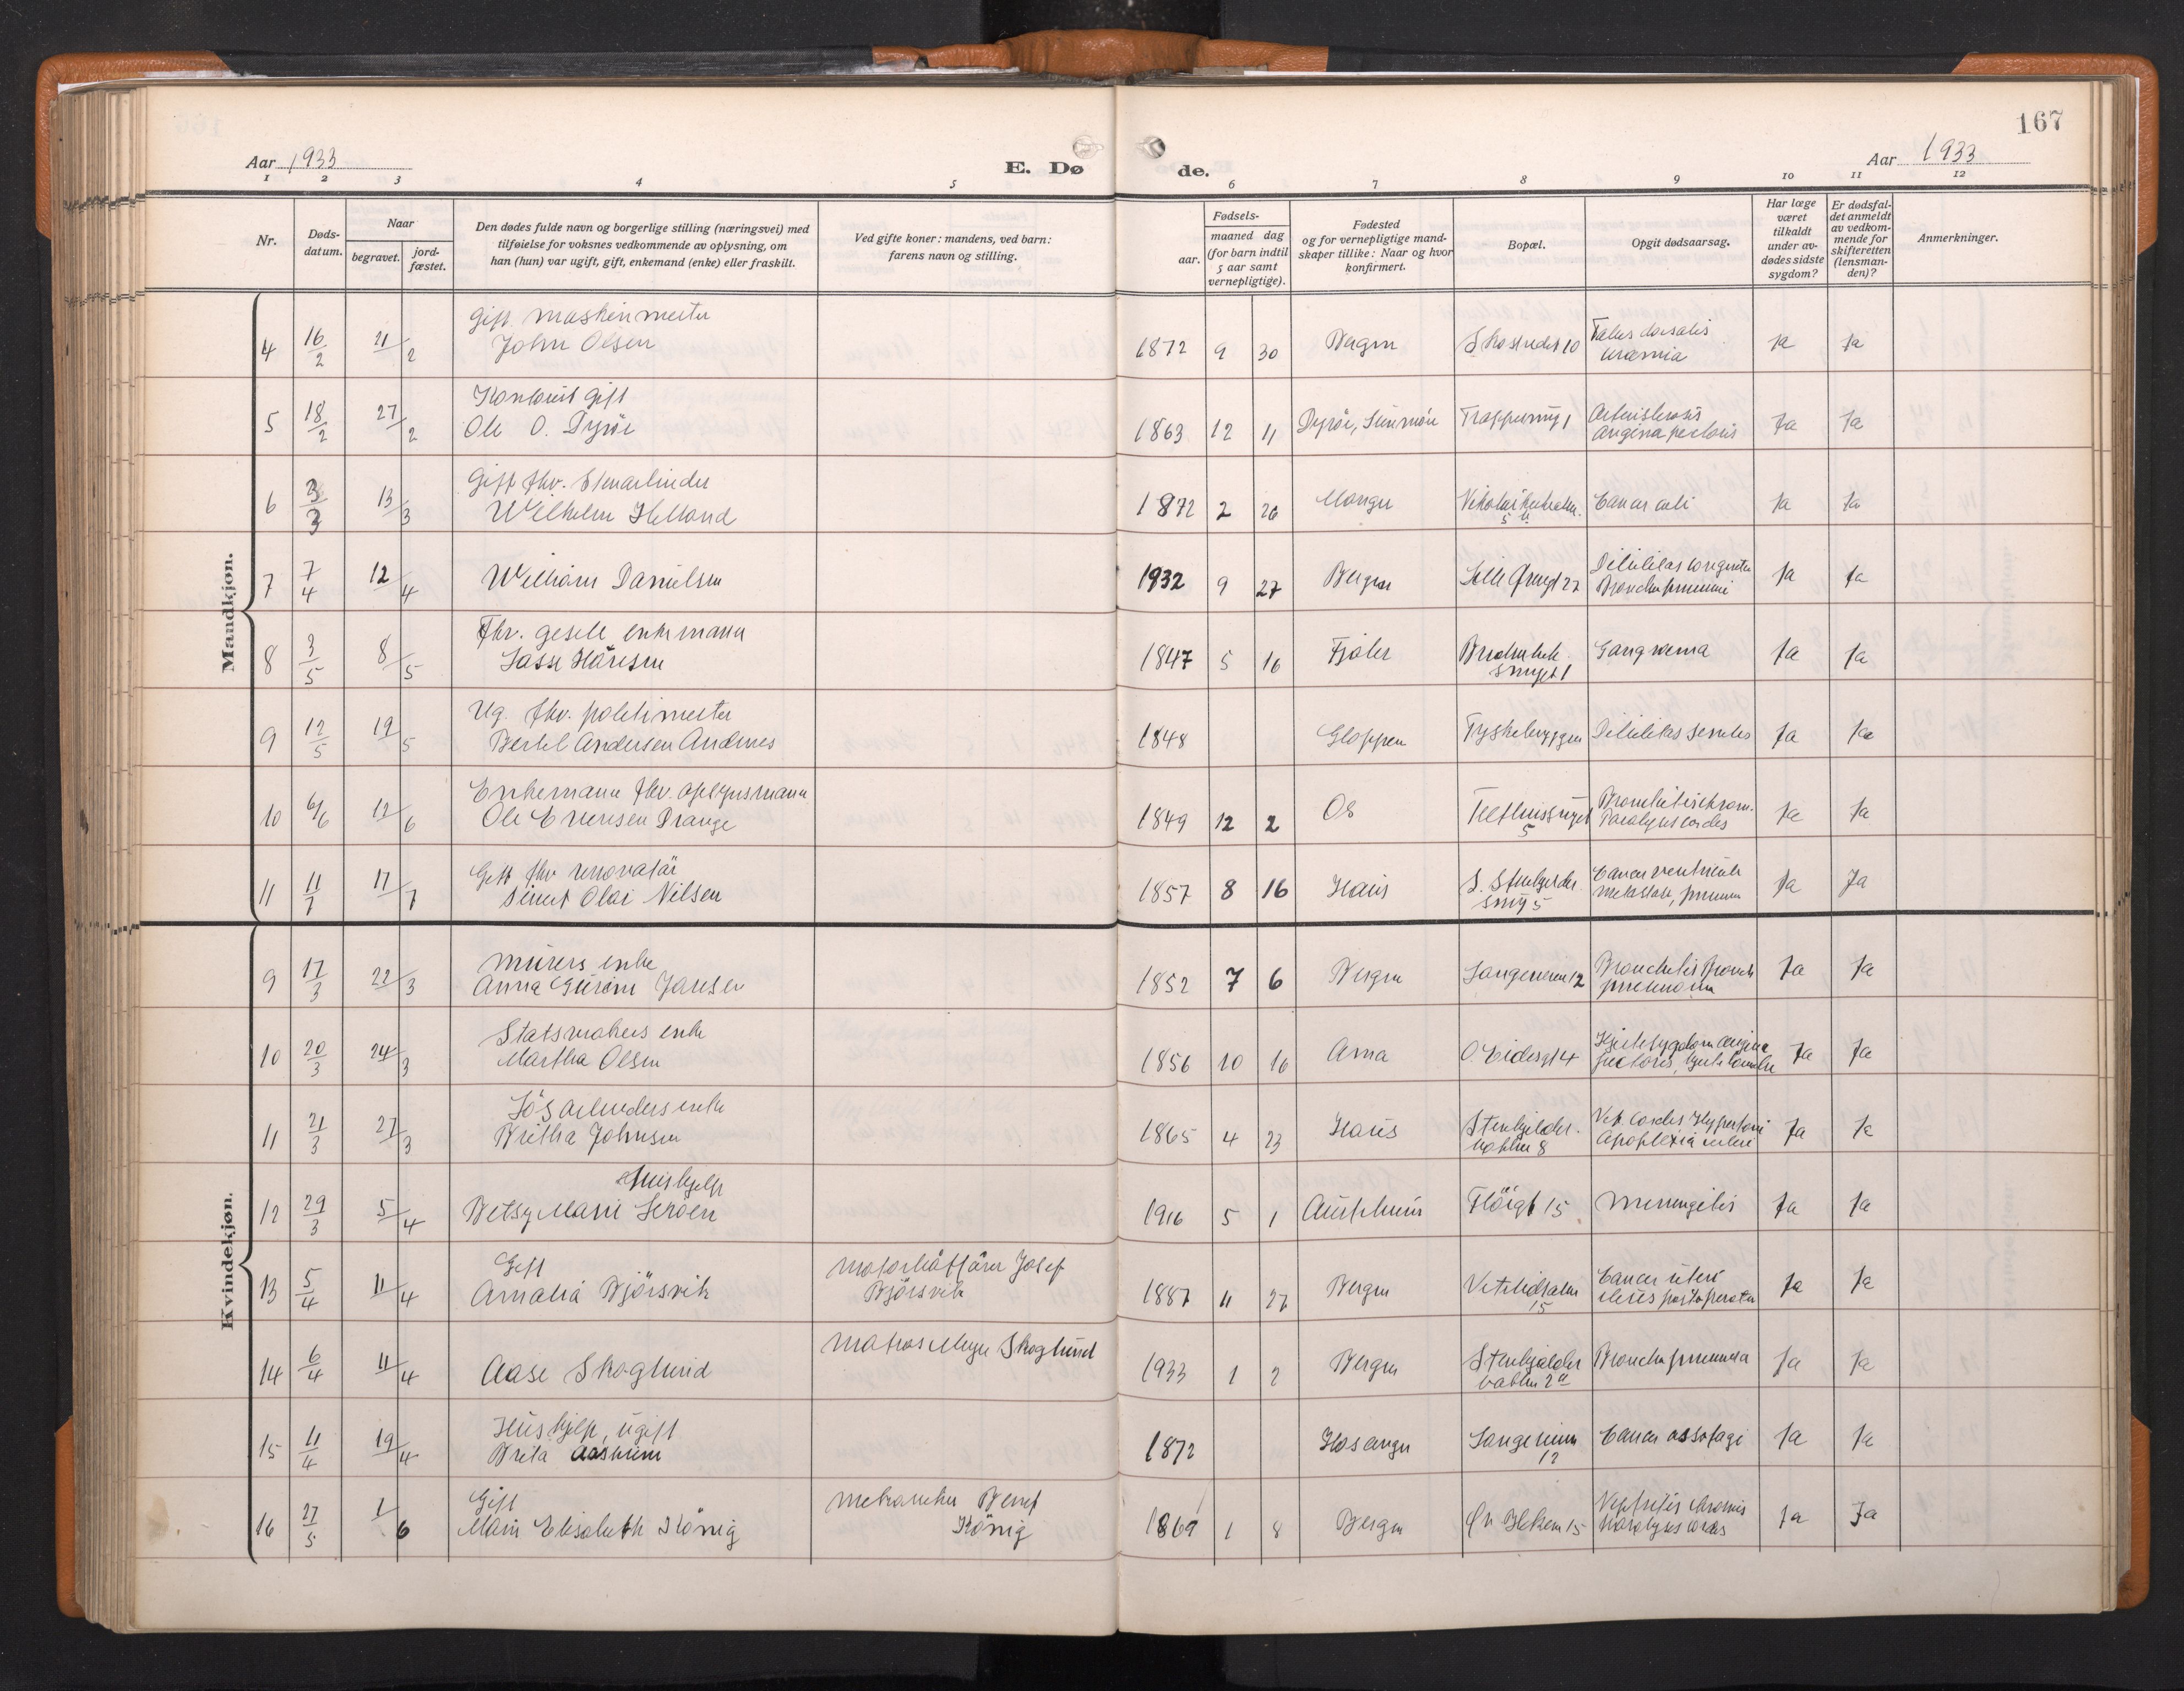 167
Aar 1933
E. Dø
de.
Aar 1933
1 2 3 4 5 6 7 8 9 10 11 12
Nr.
Døds-
datum.
Naar
begravet.
jord-
fæstet.
Den dødes fulde navn og borgerlige stilling (næringsvei) med
tilføielse for voksnes vedkommende av oplysning, om
han (hun) var ugift, gift, enkemand (enke) eller fraskilt.
Ved gifte koner: mandens, ved barn:
farens navn og stilling.
Fødsels-
aar.
maaned dag
(for barn indtil
5 aar samt
vernepligtige).
Fødested
og for vernepligtige mand-
skaper tillike: Naar og hvor
konfirmert.
Bopæl.
Opgit dødsaarsag.
Har læge
været
tilkaldt
under av-
dødes sidste
sygdom?
Er dødsfal-
det anmeldt
av vedkom-
mende for
skifteretten
(lensman-
den)?
Anmerkninger.
Mandkjøn.
Gift maskinmester
4 16/2 21/2 John Olsen 1872 9 30 Bergen 10 Tabes dorsalis
uræmia Ja Ja
gift
5 18/2 27/2 Ole O. Dyröe 1863 12 11 Dyröe, Sunnmöre 1
Angina pectoris Ja Ja
Gift fhv.
6 3/3 13/3 Wilhelm Helland 1872 2 26 Manger
5 Cancer coli Ja Ja
7 7/4 12/4 William Danielsen 1932 9 27 Bergen Lille Øvregt 27 Debilitas congenita
Bronchopneumoni Ja Ja
Fhv. gesell enkemann
8 3/5 8/5 Lasse Hansen 1847 5 16 Fjaler
smuget 1 Gangræna Ja Ja
Ug. fhv. politimester
9 12/5 19/5 Bertel Andersen Andenes 1848 Gloppen Tyskebryggen Debilitas senilis Ja Ja
Enkemann fhv. opsynsmann
10 6/6 12/6 Ole Evensen Drange 1849 12 2 Os
5 Bronchitis chron.
Paralysis cordis Ja Ja
Gift fhv renovatör
11 11/7 17/7 Olai Nilsen 1857 8 16 Haus S. Stenkjelder
smug 5 Cancer ventriculi
Ja Ja
Kvindekjøn.
Murers enke
9 17/3 22/3 Anna Gurine Jansen 1852 7 6 Bergen 12 Bronchitis Bronch
pneumonia Ja Ja
enke
10 20/3 24/3 Martha Olsen 1856 10 16 Arna O. Eidesgt 4 Hjertesygdom angina
pectoris, Ja Ja
Lösarbeiders enke
11 21/3 27/3 Britha Johnsen 1865 4 23 Haus Stenkjelder-
bakken 8 Vit. cordis Hypertoni
Apoplexia cerebri Ja Ja
Hushjelp
12 29/3 5/4 Betsy Marie Leröen 1916 5 1 Austevoll 15 Meningitis Ja Ja
Gift
13 5/4 11/4 Amalia Bjørsvik Motorbåtförer Josef
Bjørsvik 1887 11 27 Bergen Vetrlidsalm
15 Cancer uteri
Ileus postoperativ Ja Ja
14 6/4 11/4 Aase Skoglund Matros Skoglund 1933 1 2 Bergen Stenkjelder
bakken 2a Bronchopneumonia Ja Ja
Hushjelp, ugift
15 11/4 19/4 Brita Aasheim 1872 Hosanger
12 Cancer øssofagi Ja Ja
Gift
16 27/5 1/6 Marie Elisabeth König Mekaniker Bernt
König 1869 1 8 Bergen 15 Nephritis chronic
Paralysis cordis Ja Ja